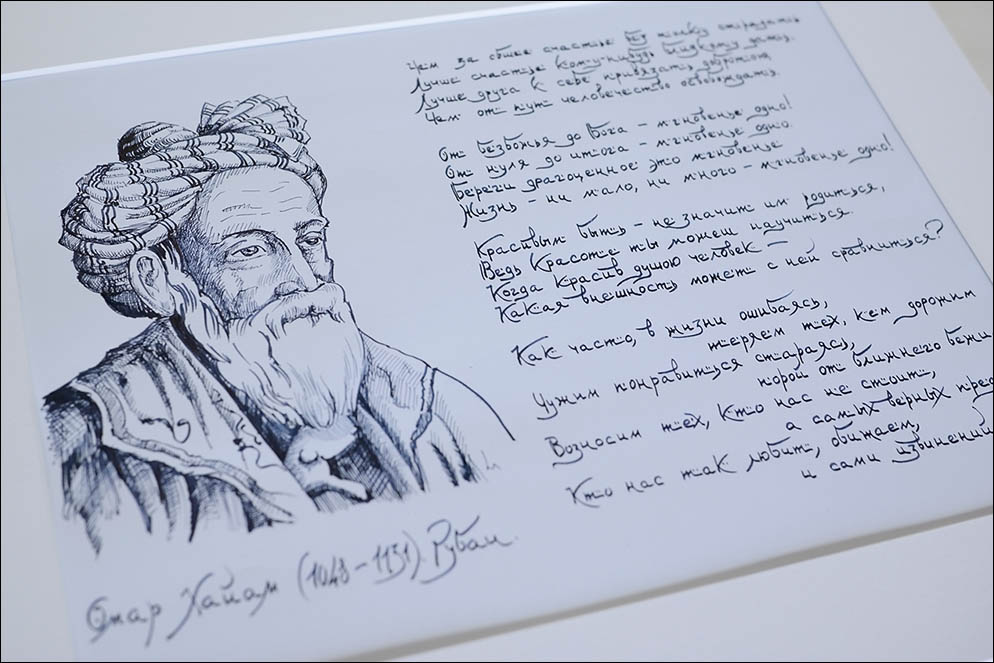 Чем за общее счастье без толку страдать
Лучше счастье кому-нибудь близкому дать.
Лучше друга к себе привязать добротою,
Чем от пут человечество освобождать.
От безбожья до Бога – мгновенье одно!
От нуля до итога – мгновенье одно.
Береги драгоценное это мгновенье
Жизнь – ни мало, ни много – мгновенье одно!
Красивым быть – не значит им родиться,
Ведь красоте ты можеш научиться.
Когда красив душою человек –
Какая внешность может с ней сравниться?
Как часто, в жизни ошибаясь,
теряем тех, кем дорожим
Чужим понравиться стараясь,
порой от ближнего бежи
Возносим тех, кто нас не стоит,
а самых верных пред
Кто нас так любит, обижаем,
и сами извинений
Омар Хайам (1048–1131). Рубаи.